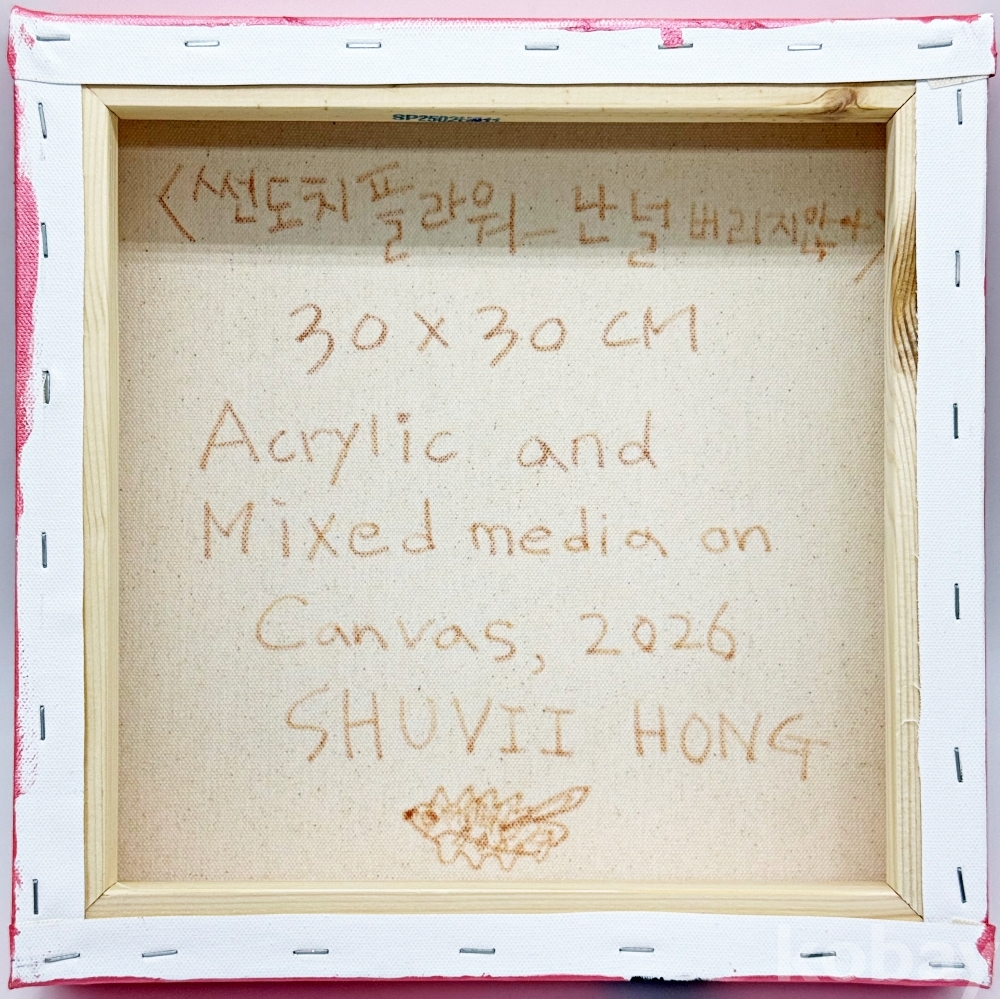 <썬도치플라워_난널버리지않아>
30 x 30 CM
Acrylic and
Mixed media on
Canvas, 2026
SHUVII HONG
kobay